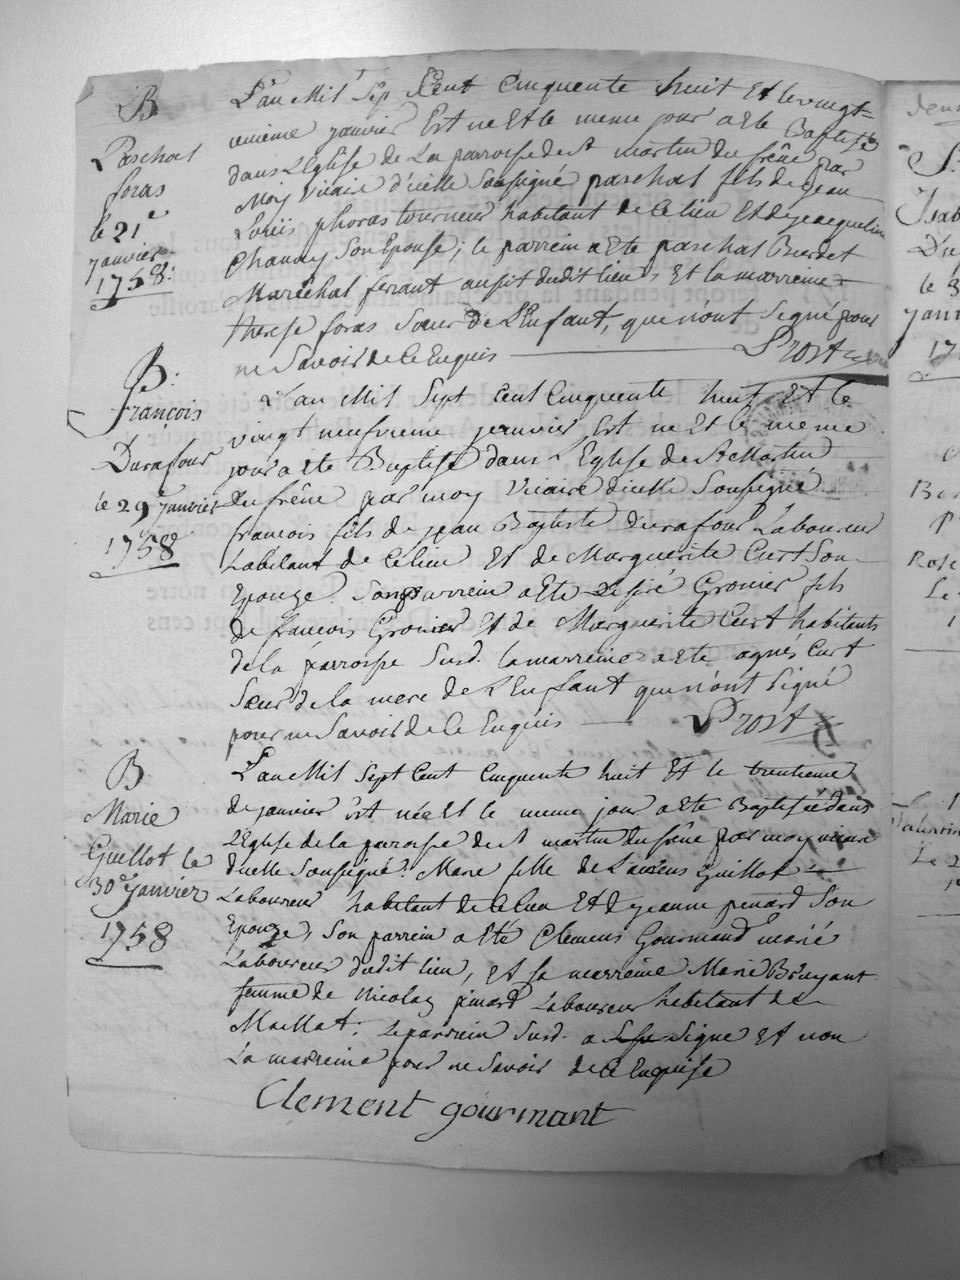 B
Paschal
foras
le 21e
janvier
1758:
L'an Mil Sep Cent Cinquente huit Et le vingt=
unieme janvier Est ne Et le meme jour a ete Baptisé
dans L'Eglise de La parroise de st martin du frêne par
Moy Vicaire d'icelle Soussigné paschal fils de jean
Louis phoras tourneur habitant de Ce lieu Et de jacqueline
Chanay Son Epouse; le parrein a ete paschal Burdet
Maréchal ferrant ausit dudit lieu, Et la marreine
therese foras Sœur de L'Enfant, que n'ont Signé pour
ne Savoir de Ce Enquis Prost
B:
françois
Durafour
le 29e janvier
1758
L'an Mil Sept Cent Cinquente huit Et le
vingt neufvieme janvier Est ne Et le meme
jour a ete Baptisé dans L'Eglise de St Martin
du frêne par moy Vicaire d'icelle Soussigné
francois fils de jean Baptiste durafour Laboureur
habitant de Ce lieu Et de Marguerite Curt Son
Epouze. Son parrein a ete Grenier fils
de francois Grenier Et de Marguerite Curt habitants
de la parroisse Susd. la marreine a ete agnés Curt
Sœur de la mere de L'Enffant que n'ont Signé
pour ne Savoir de Ce Enquis Prost
B
Marie
Guillot le
30e janvier
1758
L'an Mil Sept Cent Cinquente huit Et le trentieme
de janvier Est née Et le meme jour a ete Baptisée dans
L'Eglise de la paroisse de st martin du frêne par moy vicaire
d'icelle Soussigné. Marie fille de Guillot
Laboureur habitant de Ce lieu Et de jeanne penard Son
Epouze, Son parrein a Eté Clemens Gourmand marié
Laboureur dudit lieu, Et Sa marreine Marie Bruyant
femme de Nicolas pinard Laboureur habitant de
Maillat: Le parrein Susd. a Signe Et non
La marreine pour ne Savoir de Ce Enquise
Clement gourmant
le 3
janv
17
Rose